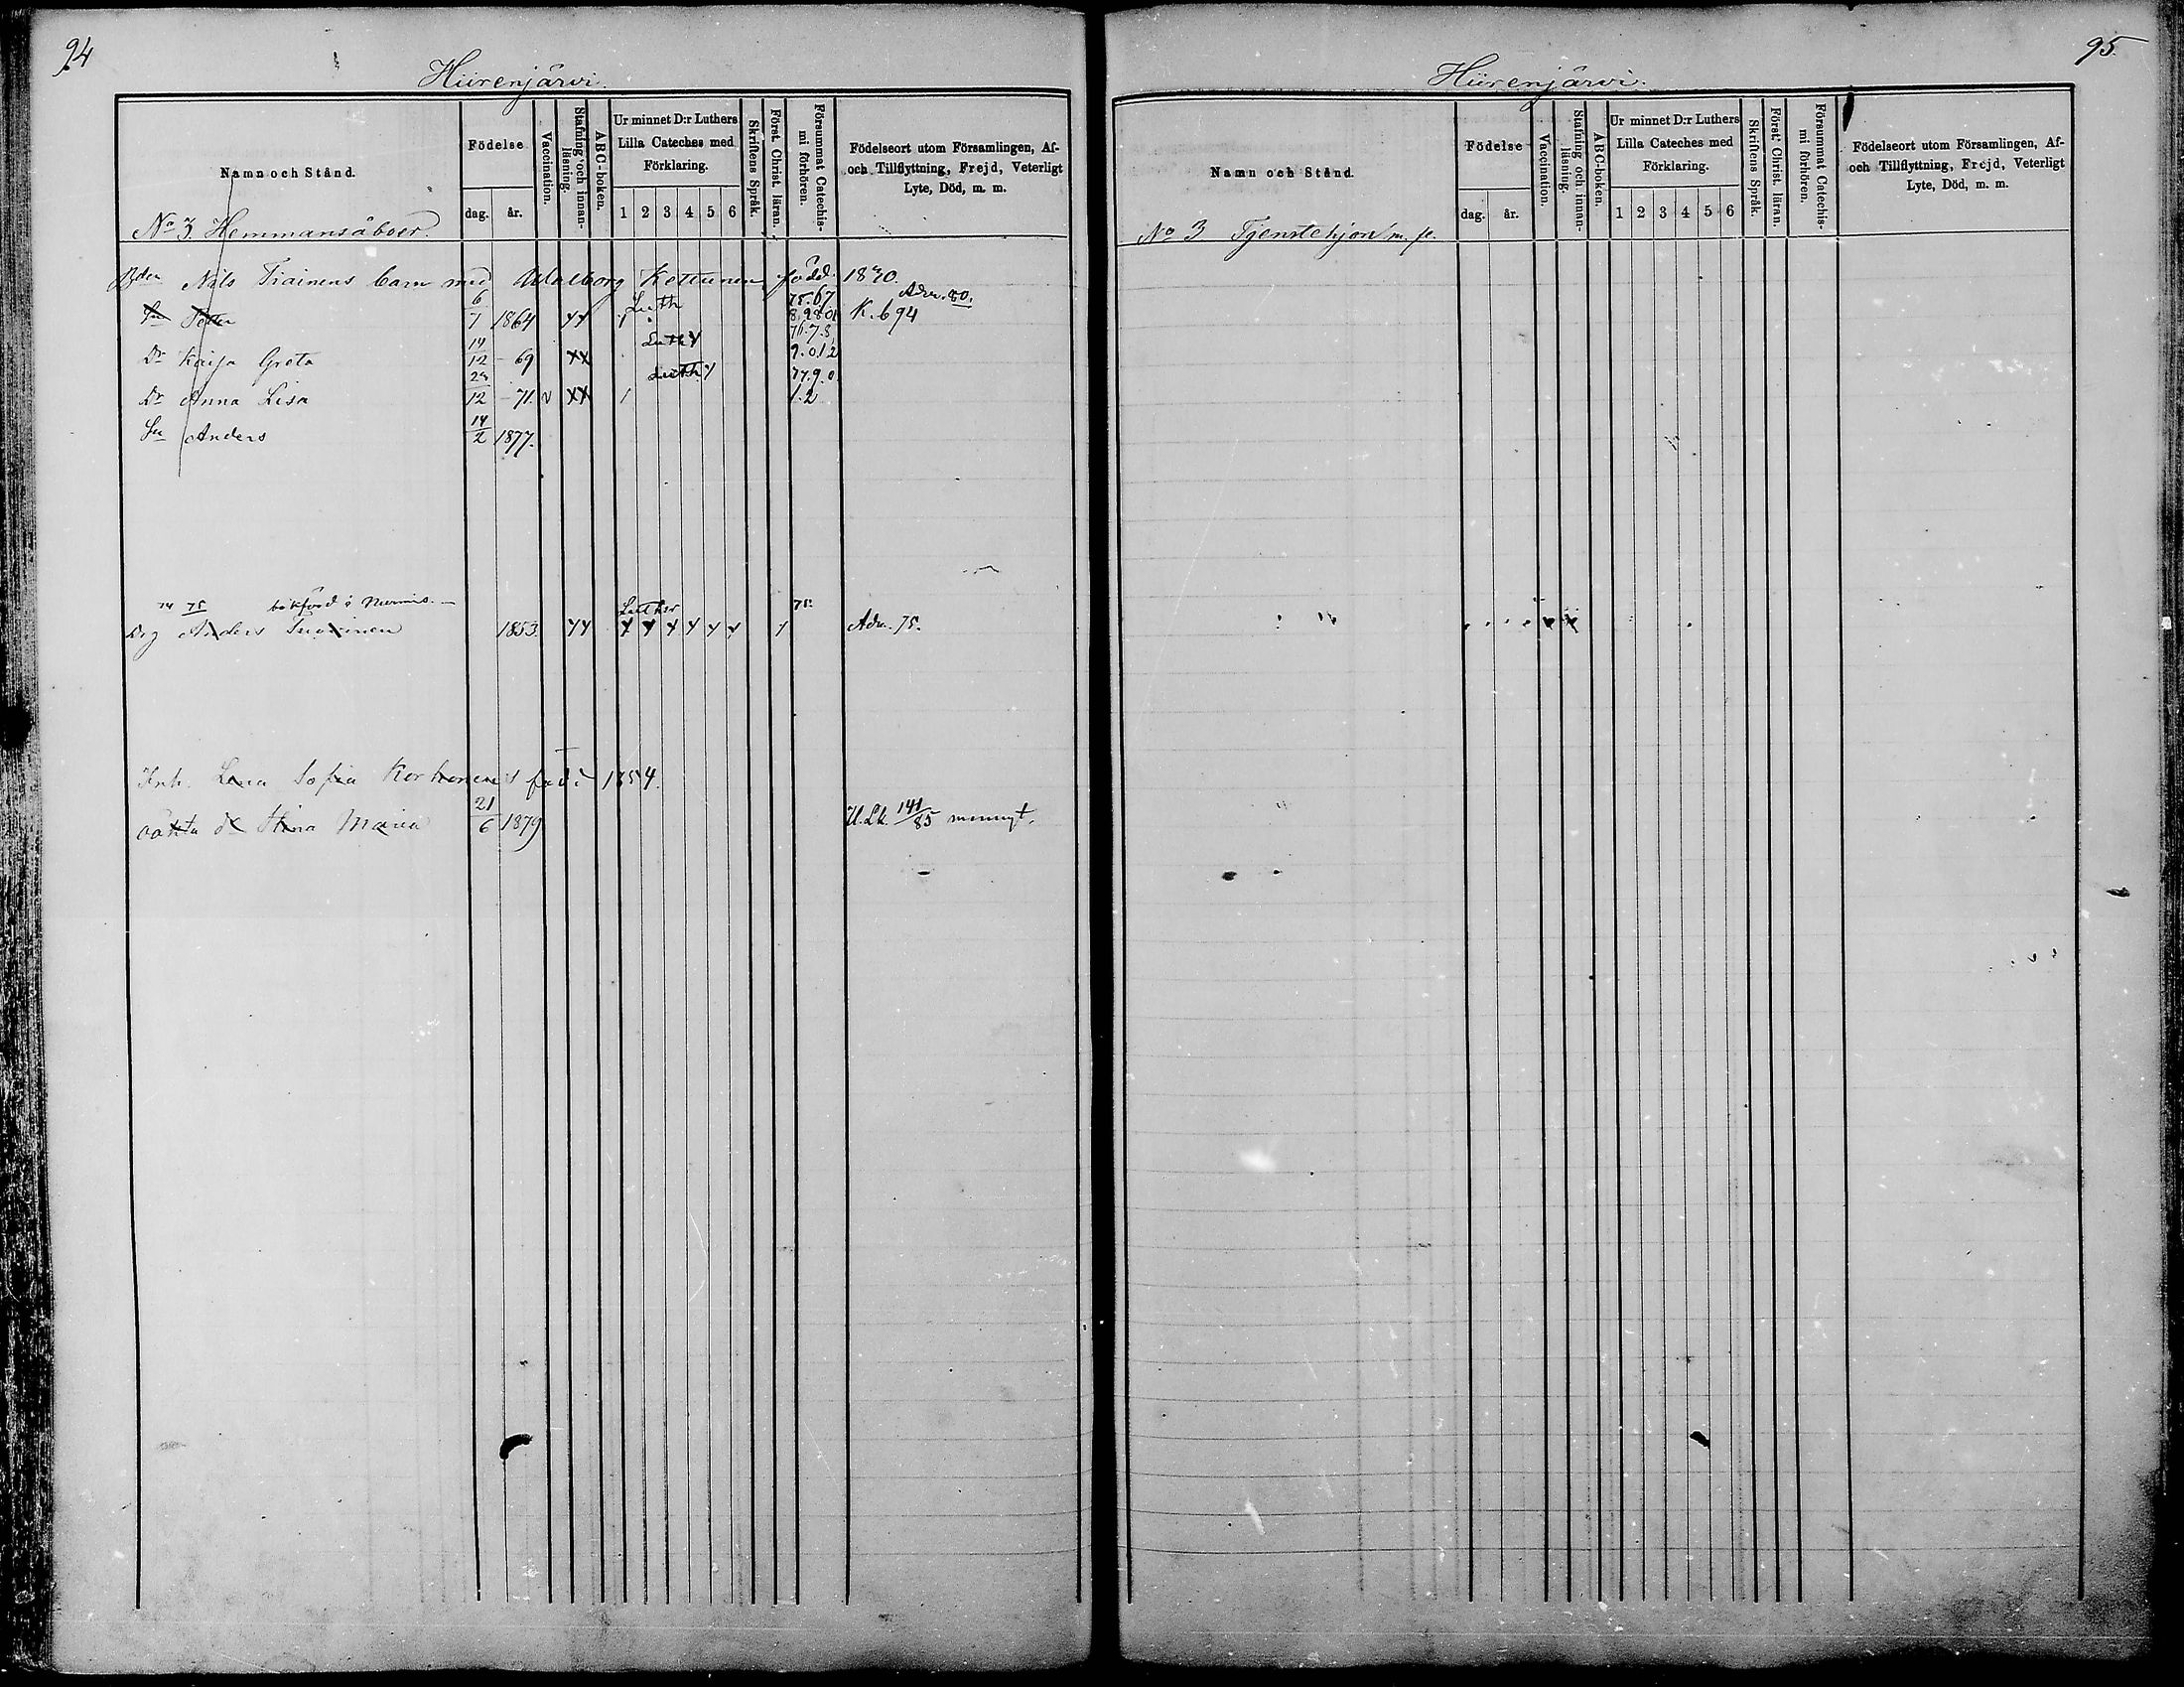 94
Hiirenjärvi.
Namn och Stånd.
Födelse
dag. år.
Vaccination.
Stafning och innan-
läsning.
ABC-boken.
Ur minnet D:r Luthers
Lilla Cateches med
Förklaring.
1 2 3 4 5 6
Skriftens Språk.
Först. Christ. läran.
Försummat Catechis-
mi förhören.
Födelseort utom Församlingen, Af-
och Tillflyttning, Frejd, Veterligt
Lyte, Död, m. m.
No 3. Hemmansåboer.
Bden Nils Tiainens barn med Walborg Kettunen född. 1840.
6 Luth 75.67 Adm. 80.
Sn Petter 7 1864 K. 694
14 Luth 76.7.8
Dr Kaisa Greta 12 - 69 XX 9.0.12
Luth 77.9.0
Dr Anna Lisa 12 - 71. v XX 1 1.2
14
Sn Anders 2 1877.
74 75 bokförd i Nurmis. Luther 75.
Drg Anders 1853 Adm. 75.
Inh. Lena Sofia Korhonens född 1854.
21
oäkta dr Stina Maria 6 1879 U. Lk. 141/85
95.
Hiirenjärvi.
Namn och Stånd.
Födelse
dag. år.
Vaccination.
Stafning och innan-
läsning.
ABC-boken.
Ur minnet D:r Luthers
Lilla Cateches med
Förklaring.
1 2 3 4 5 6
Skriftens Språk.
Först. Christ. läran.
Försummat Catechis-
mi förhören.
Födelseort utom Församlingen, Af-
och Tillflyttning, Frejd, Veterligt
Lyte, Död, m. m.
No 3 Tjenstehjon m. fl.